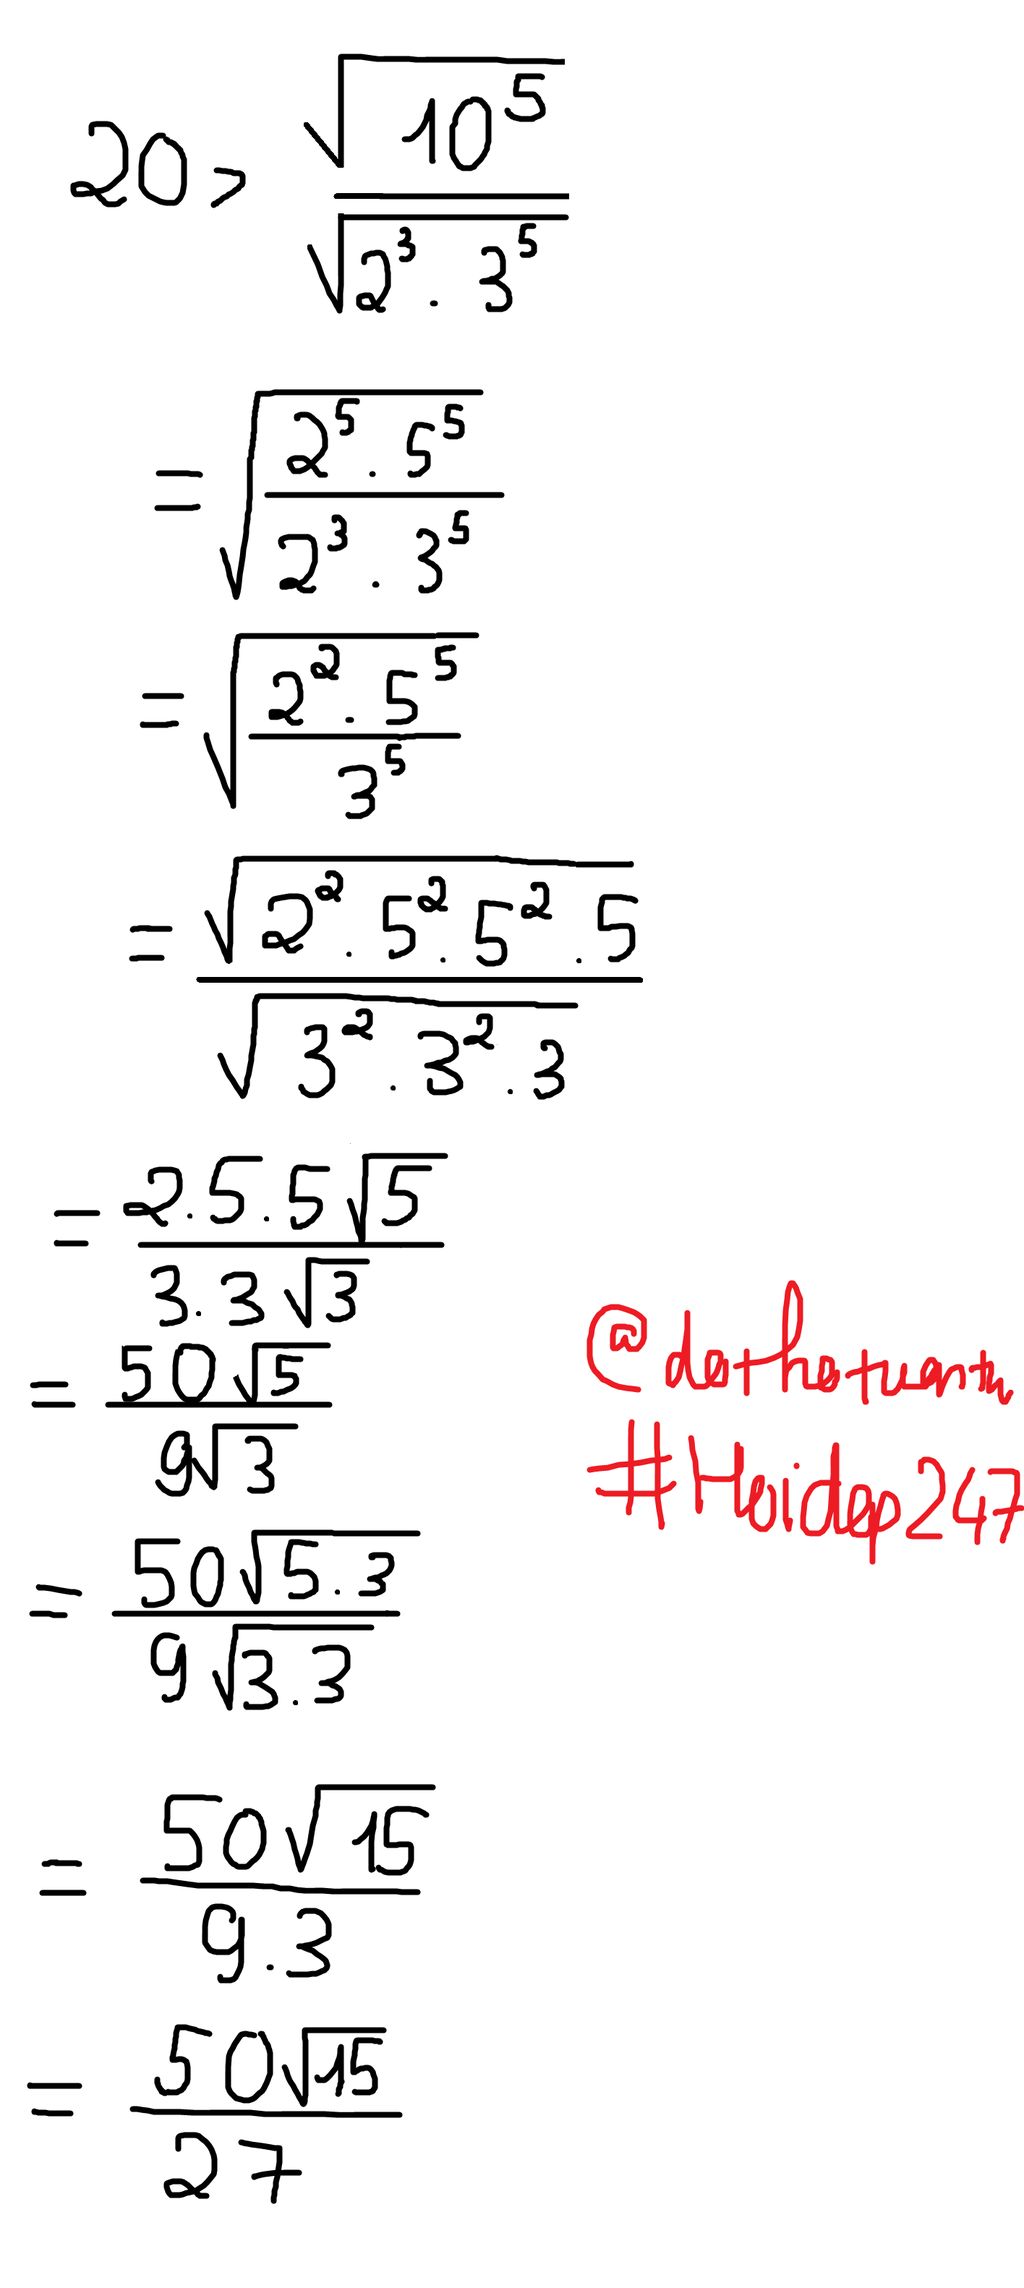 20> √(10^5) / √(2^3 . 3^5)
= √((2^5 . 5^5) / (2^3 . 3^5))
= √((2^2 . 5^5) / 3^5)
= √(2^2 . 5^2 . 5^2 . 5) / √(3^2 . 3^2 . 3)
= (2.5.5√5) / (3.3√3)
= (50√5) / (9√3)
= (50√(5.3)) / (9√(3.3))
= (50√15) / (9.3)
= (50√15) / 27
#Hoidap247